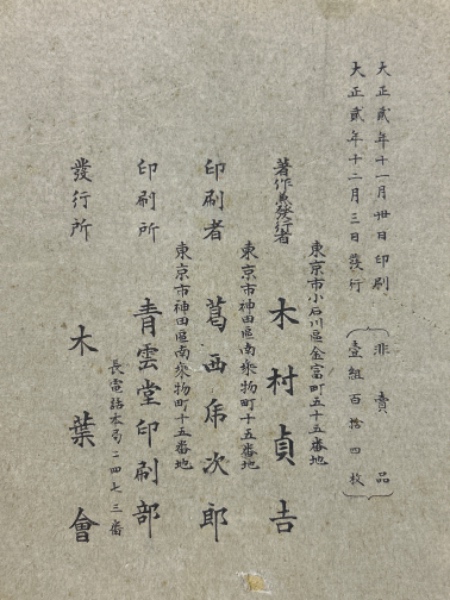 大正貳年十一月卅日印刷
大正貳年十二月三日發行
非賣品
壹組百拾四枚
東京市小石川區金富町五十五番地
著作兼發行者 木村貞吉
東京市神田區南乘物町十五番地
印刷者 葛西虎次郎
東京市神田區南乘物町十五番地
印刷所 青雲堂印刷部
長電話本局二四七三番
發行所 木葉會